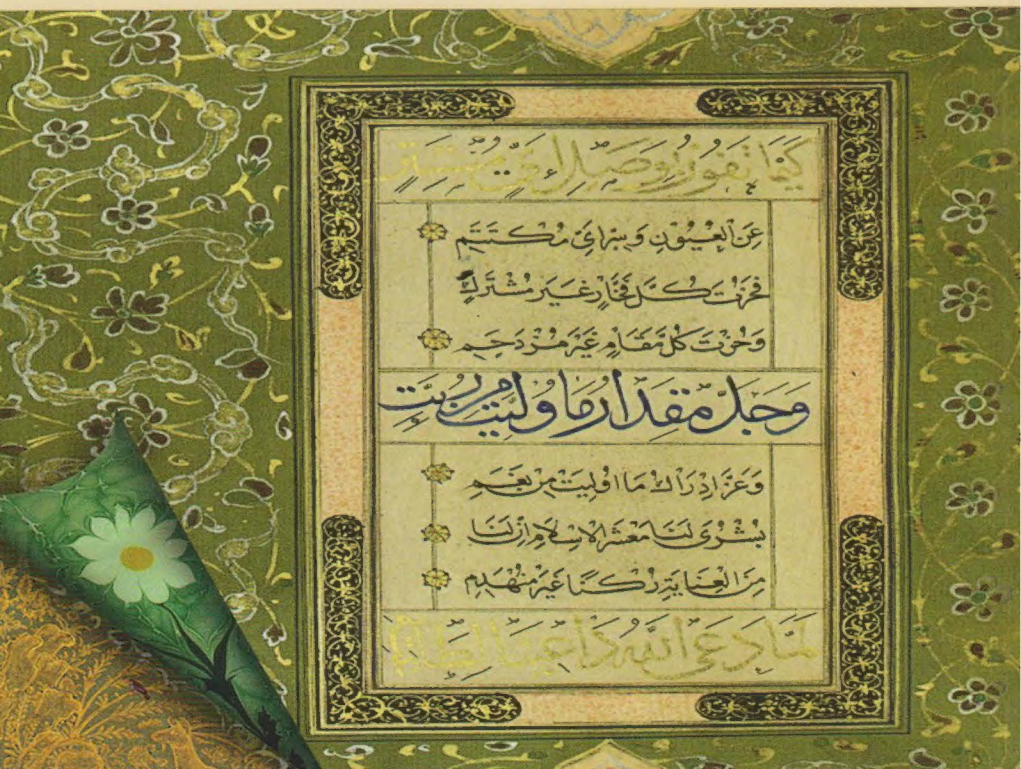 كيما تفوز بوصل اي مستتر
عن العيون وسر اي مكتتم
فحزت كل فخار غير مشترك
وجزت كل مقام غير مزدحم
وجل مقدار ما وليت من رتب
وعز ادراك ما اوليت من نعم
بشرى لنا معشر الاسلام ان لنا
من العناية ركنا غير منهدم
لما دعى الله داعينا